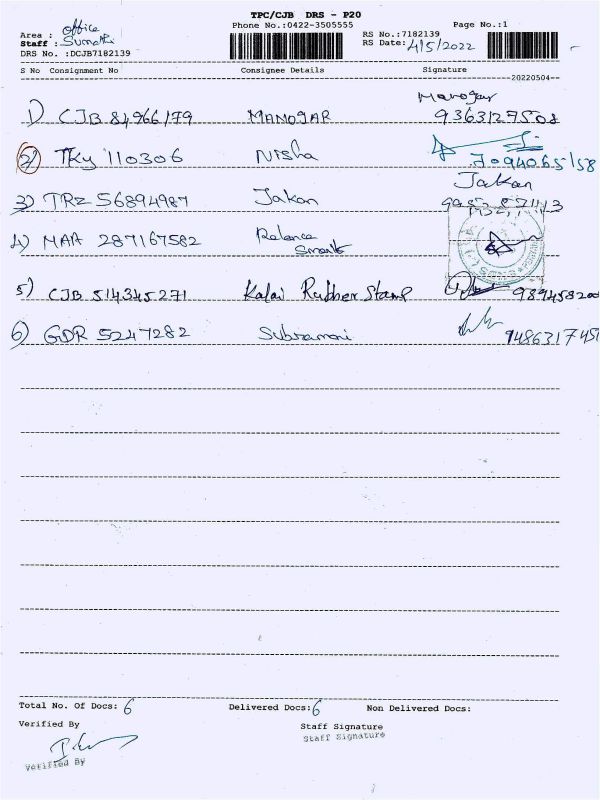 TPC/CJB DRS - P20
Phone No.:0422-3505555
Page No.:1
Area : office
Staff : Sumathi
DRS No. :DCJB7182139
RS No.:7182139
RS Date: 4/5/2022
S No Consignment No Consignee Details Signature
20220504
Manogar
1) CJB 84966179 MANOJAR 9363127508
2) TKY 110306 Nisha 7094065158
Jakan
3) TRZ 56894987 Jakan
4) MAA 287167582 Relance
Smart
5) CJB 514345271 Kalai Rubber Stamp
6) GDR 5247282 Subramani
Total No. Of Docs: 6 Delivered Docs: 6 Non Delivered Docs:
Verified By Staff Signature
Staff Signature
Verified By